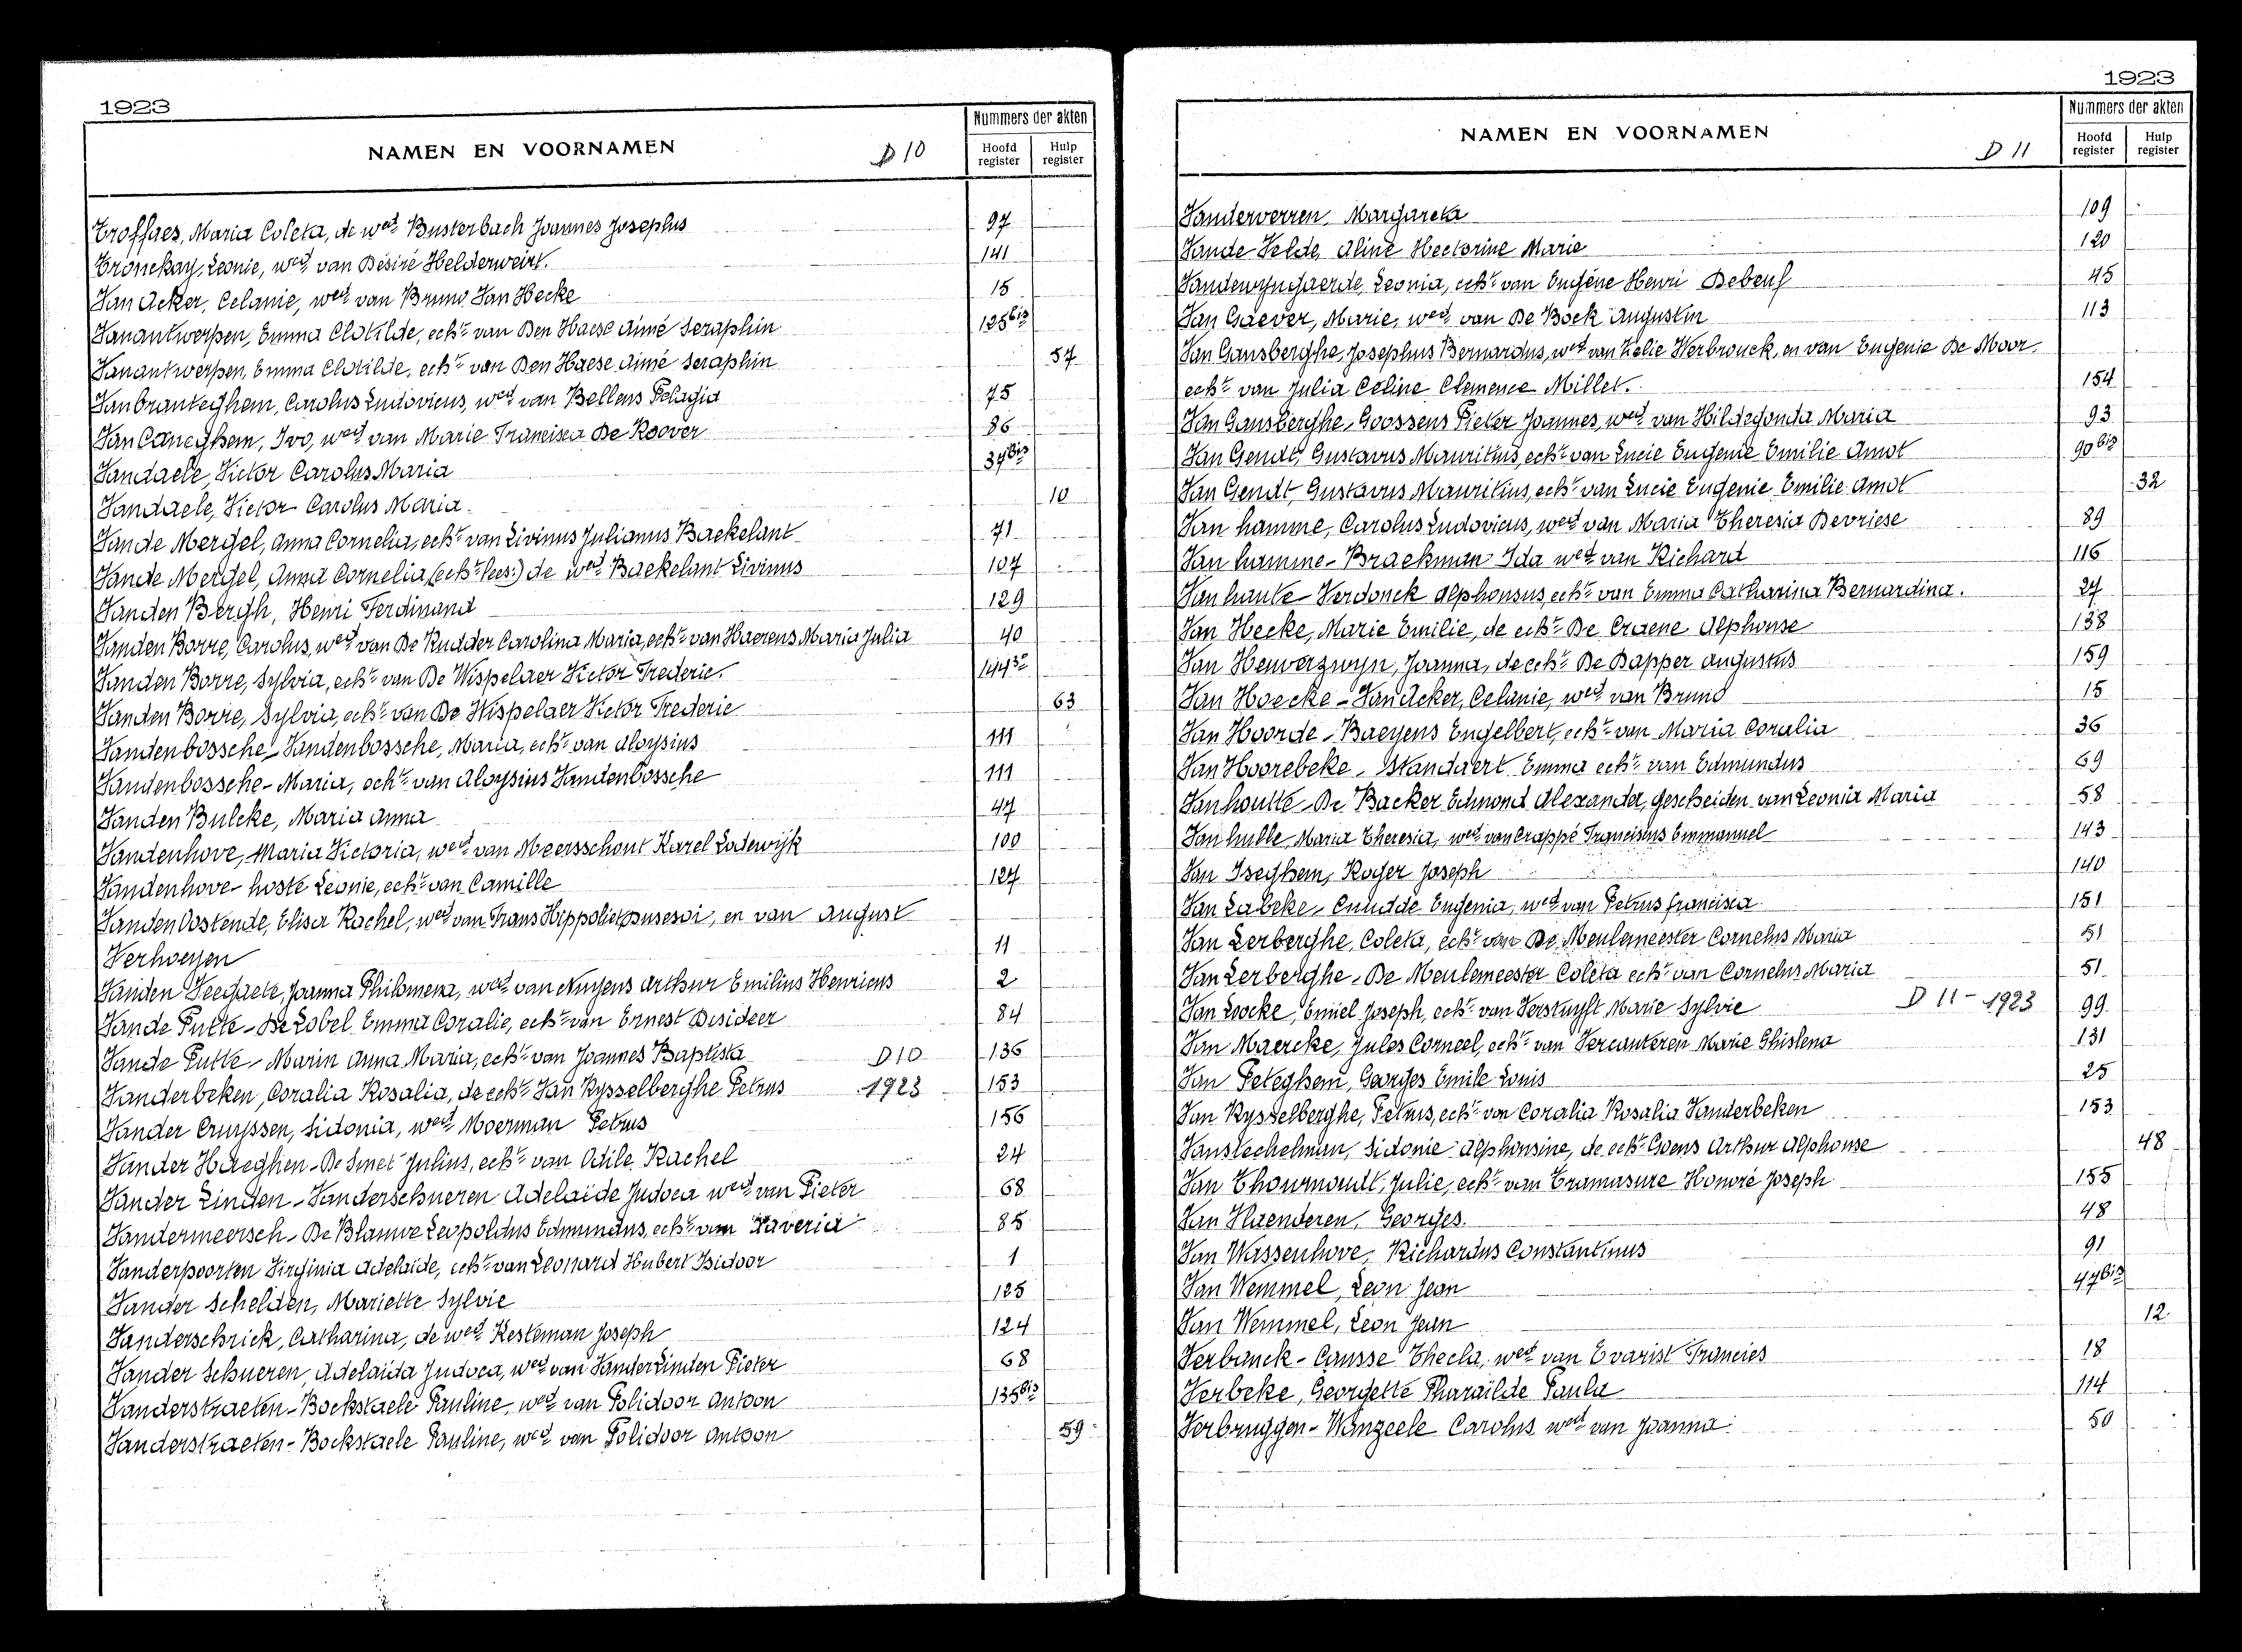 1923
NAMEN EN VOORNAMEN D 10
Nummers der akten
Hoofd register Hulp register
Troffaes, Maria Coleta, de wed. Busterbach Joannes Josephus 97
Tronckay, Leonie, wed. van Désiré Helderweirt. 141
Van Acker, Celanie, wed. van Bruno Van Hecke 15
Vanantwerpen, Emma Clotilde, echt. van Den Haese Aimé Seraphin 125bis
Vanantwerpen, Emma Clotilde, echt. van Den Haese Aimé Seraphin 57
Vanbranteghem, Carolus Ludovicus, wed. van Bellens Pelagia 75
Van Caneghem, Ivo, wed. van Marie Francisca De Roover 86
Vandaele, Victor Carolus Maria 37bis
Vandaele, Victor Carolus Maria. 10
Vande Mergel, Anna Cornelia, echt. van Livinus Julianus Baekelant 71
Vande Mergel, Anna Cornelia, (echt. lees:) de wed. Baekelant Livinus 107
Vanden Bergh, Henri Ferdinand 129
Vanden Borre, Carolus, wed. van De Rudder Carolina Maria, echt. van Haerens Maria Julia 40
Vanden Borre, Sylvia, echt. van De Wispelaer Victor Frederic. 144
Vanden Borre, Sylvia, echt. van De Wispelaer Victor Frederic 63
Vandenbossche-Vandenbossche, Maria, echt. van Aloysius 111
Vandenbossche-Maria, echt. van Aloysius Vandenbossche 111
Vanden Bulcke, Maria Anna 47
Vandenhove, Maria Victoria, wed. van Meersschont Karel Lodewijk 100
Vandenhove-hoste Leonie, echt. van Camille 127
Vanden Oostende, Elisa Rachel, wed. van Frans Hippoliet en van August
Verhoeyen 11
Vanden Veegaete, Joanna Philomena, wed. van Nuijens Arthur Emilius Henricus 2
Vande Putte-De Lobel Emma Coralie, echt. van Ernest Desideer 84
Vande Putte-Marin Anna Maria, echt. van Joannes Baptista D10 136
Vanderbeken, Coralia Rosalia, de echt. Van Rysselberghe Petrus 1923 153
Vander Cruyssen, Sidonia, wed. Moerman Petrus 156
Vander Haeghen-De Smet Julius, echt. van Odile Rachel 24
Vander Linden-Vanderschueren Adelaïde Judoca wed. van Pieter 68
Vandermeersch-De Blauwe Leopoldus Edmundus, echt. van Xaveria 85
Vanderpoorten Virginia Adelaïde, echt. van Leonard Hubert Isidoor 1
Vander Schelden, Mariette Sylvie 125
Vanderschrick, Catharina, de wed. Kesteman Joseph 124
Vander Schueren, Adelaïda Judoca, wed. van Vander Linden Pieter 68
Vanderstraeten-Bockstaele Pauline, wed. van Polidoor Antoon 135bis
Vanderstraeten-Bockstaele Pauline, wed. van Polidoor Antoon 59
1923
NAMEN EN VOORNAMEN D 11
Nummers der akten
Hoofd register Hulp register
Vanderverren, Margareta 109
Vande Velde, Aline Hectorine Marie 120
Vandewyngaerde, Leonia, echt. van Eugéne Henri Debeuf 45
Van Gaever, Marie, wed. van De Bock Augustin 113
Van Gansberghe, Josephus Bernardus, wed. van Zelie Verbrouck, en van Eugenie De Moor.
echt. van Julia Celine Clemence Millet. 154
Van Gansberghe-Goossens Pieter Joannes, wed. van Hildegonda Maria 93
Van Gendt, Gustavus Mauritius, echt. van Lucie Eugenie Emilie Amot 90bis
Van Gendt, Gustavus Mauritius, echt. van Lucie Eugenie Emilie Amot 32
Van hamme, Carolus Ludovicus, wed. van Maria Theresia Devriese 89
Van hamme-Braekman Ida wed. van Richard 116
Van haute-Verdonck Alphonsus, echt. van Emma Catharina Bernardina. 27
Van Hecke, Marie Emilie, de echt. De Craene Alphonse 138
Van Heuverzwyn, Joanna, de echt. De Dapper Augustus 159
Van Hoecke-Van Acker, Celanie, wed. van Bruno 15
Van Hoorde-Baeyens Engelbert, echt. van Maria Coralia 36
Van Hoorebeke-Standaert Emma echt. van Edmundus 69
Vanhoutte-De Backer Edmond Alexander, gescheiden van Leonia Maria 58
Van hulle, Maria Theresia, wed. van Crappé Franciscus Emmanuel 143
Van Iseghem, Roger Joseph 140
Van Labeke-Cnudde Eugenia, wed. van Petrus francisca 151
Van Lerberghe, Coleta, echt. van De Meulemeester Cornelus Maria 51
Van Lerberghe-De Meulemeester Coleta echt. van Cornelus Maria 51
Van Loocke, Emiel Joseph, echt. van Verstuyft Marie Sylvie D 11-1923 99
Van Maercke, Jules Corneel, echt. van Vercauteren Marie Ghislena 131
Van Peteghem, Georges Emile Louis 25
Van Rysselberghe, Petrus, echt. van Coralia Rosalia Vanderbeken 153
Vanstechelman, Sidonie Alphonsine, de echt. Goens Arthur Alphonse 48
Van Thournoudt, Julie, echt. van Tramasure Honoré Joseph 155
Van Vlaenderen, Georges. 48
Van Wassenhove, Richardus Constantinus 91
Van Wemmel, Leon Jean 47bis
Van Wemmel, Leon Jean 12
Verbanck-Causse Thecla, wed. van Evarist Francies 18
Verbeke, Georgette Pharaïlde Paula 114
Verbruggen-Wanzeele Carolus wed. van Joanna. 50